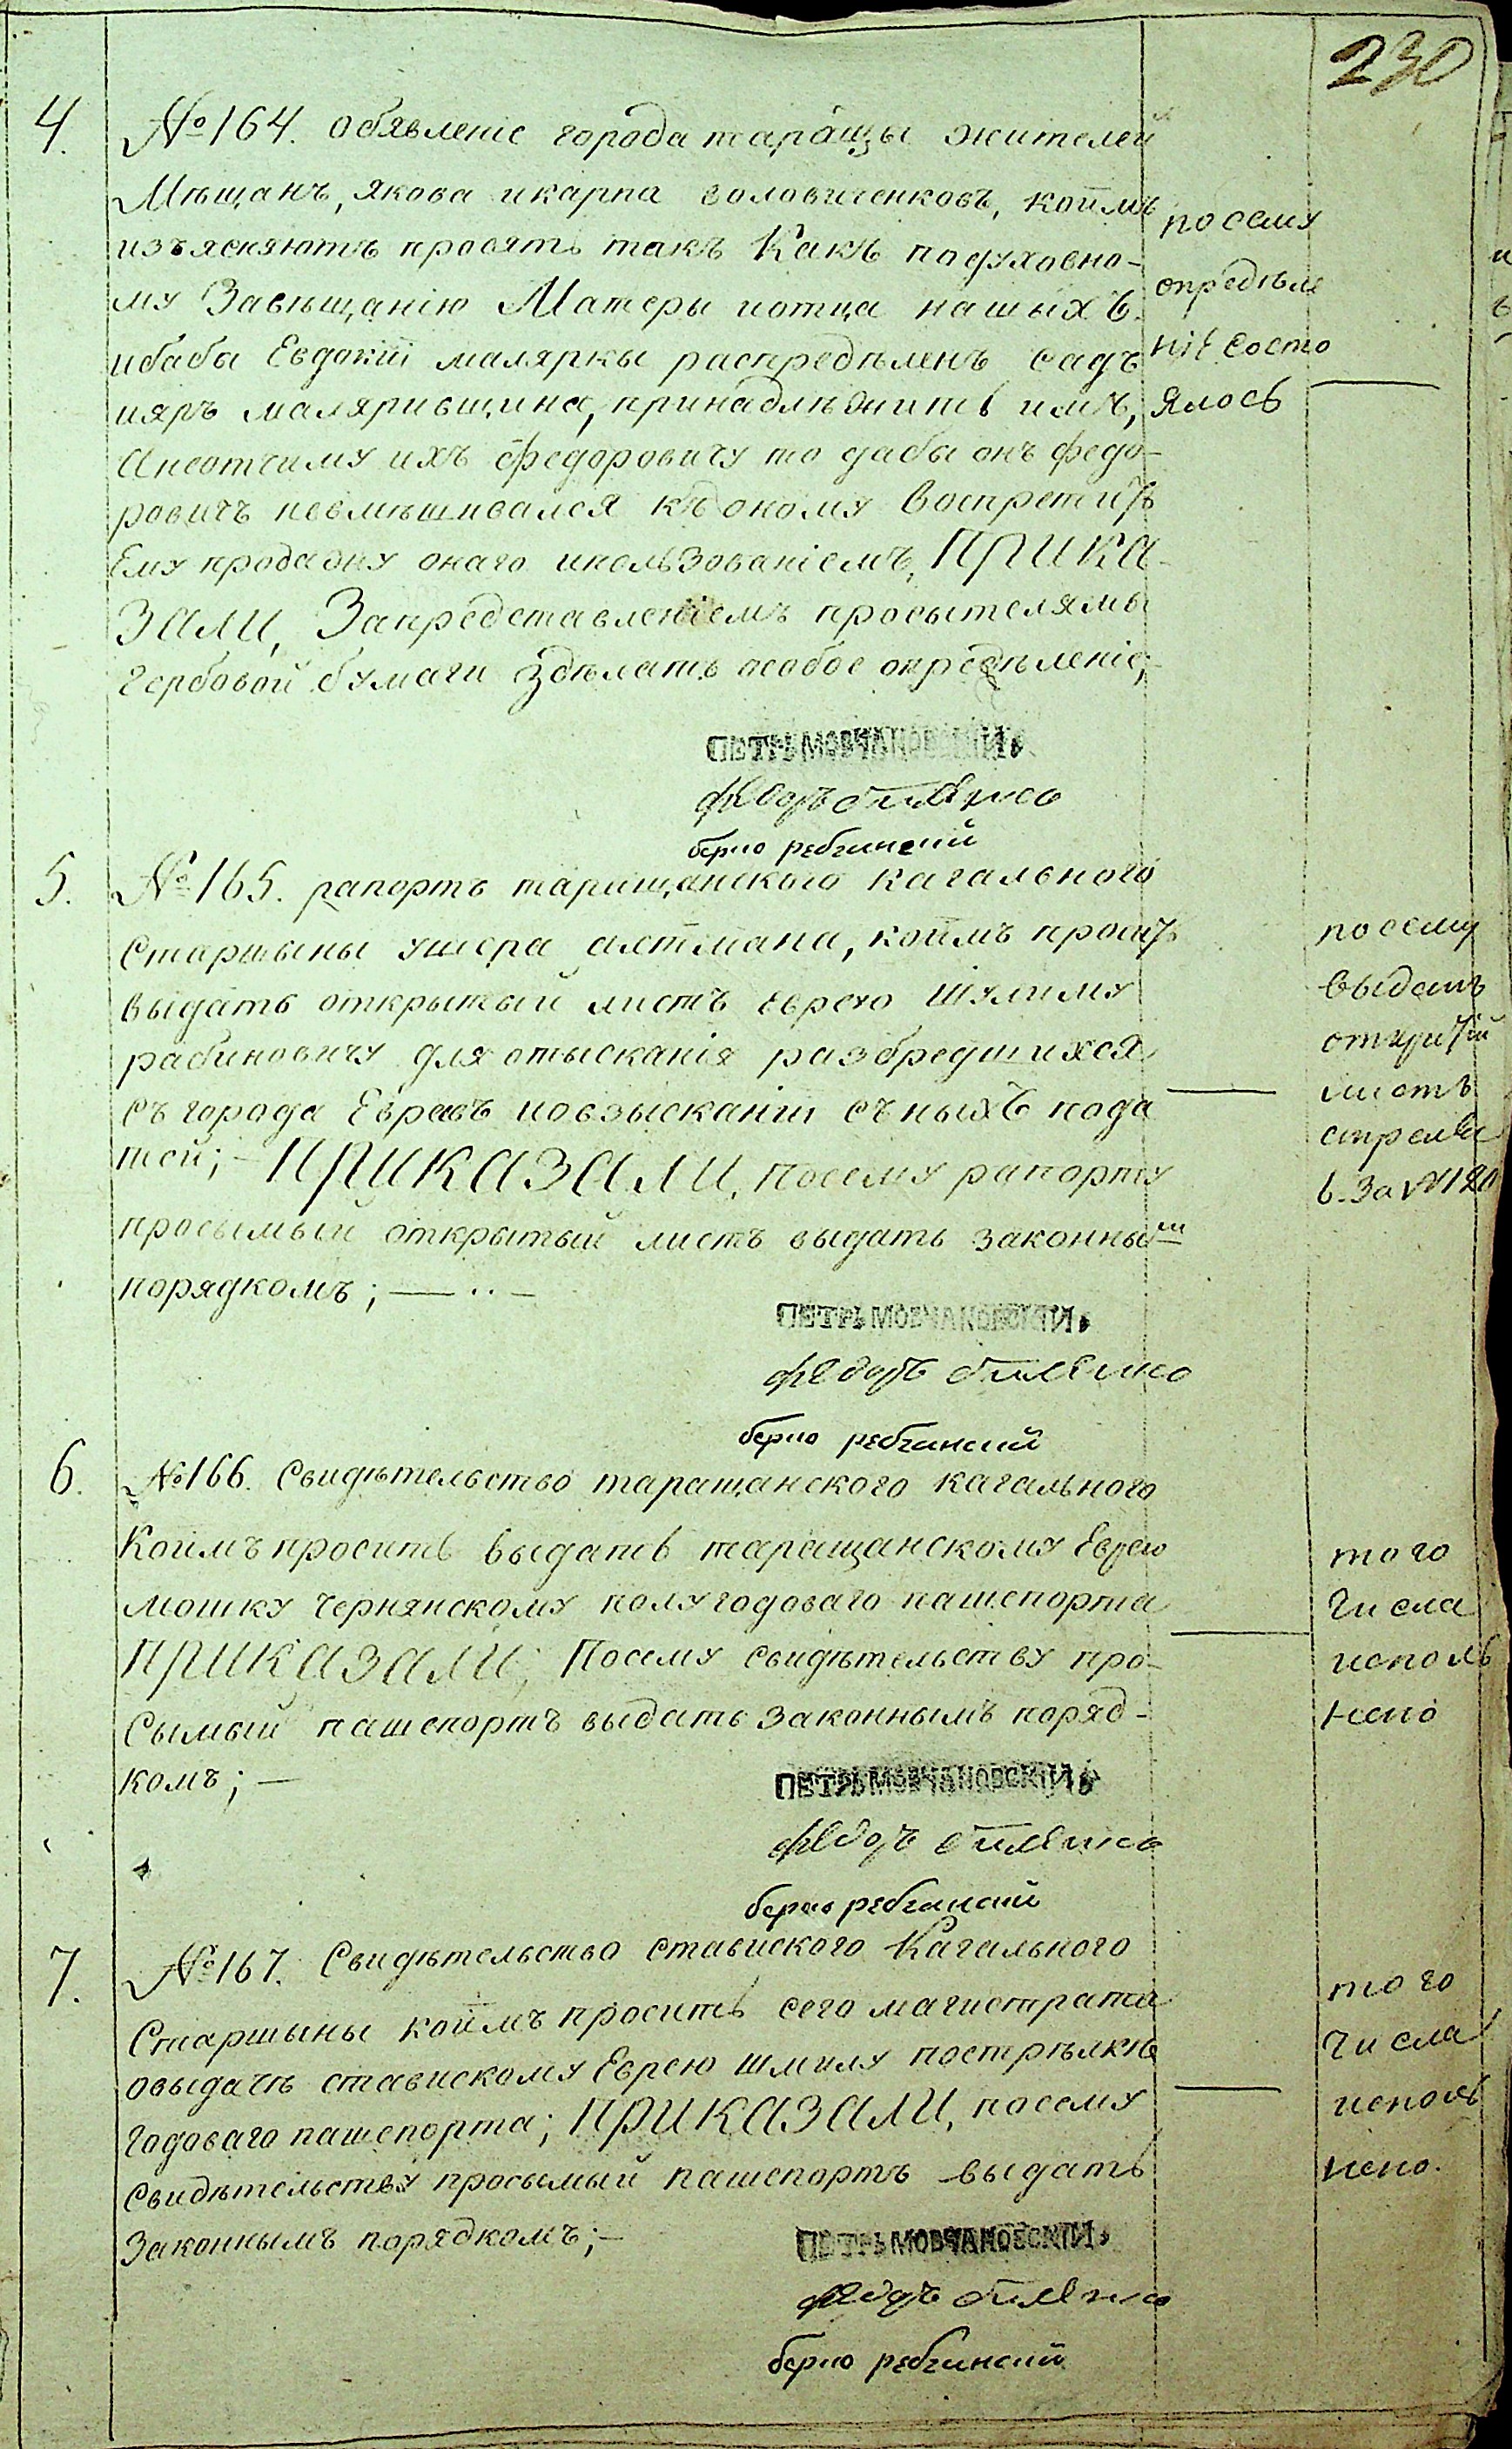 230
4.
№ 164. Обявленіе города таращы жителей
Мѣщанъ, якова икарпа воловиченковъ, коимъ
изъясняютъ просятъ такъ Какъ подуховно-
му Завѣщанію Матеры иотца нашыхъ.
ибабы Евдокіи малярки распредѣленъ садъ
ияръ маляривщина, принадлѣжитъ имъ,
Анеотчиму ихъ федоровичу то дабы онъ федо-
ровичъ невмѣшивался къ оному Воспретить
Ему продажу онаго ипользованіемъ, ПРИКА-
ЗАЛИ, Запредставленіемъ просытелямы
гербовой бумаги здѣлать особое опредѣленіе;
посему
опредѣле
ніе состо
ялось
ПЕТРЪ МОВЧАНОВСКІЙ
федоръ
берко
5.
№ 165. рапортъ таращанского кагального
Старшыны ушера алтмана, коимъ просить
выдать открытый листъ еврею Шулиму
рабиновичу для отысканія разбредшихся
съ города Евреевъ ивовзысканіи съ ныхъ пода
тей; - ПРИКАЗАЛИ, посему рапорту
просымый открытый листъ выдать законным
порядкомъ; —
посему
выданъ
открытій
листъ
ПЕТРЪ МОВЧАНОВСКІЙ
федоръ
берко
6.
№ 166. Свидѣтельство таращанского кагального
Коимъ проситъ выдать таращанскому Еврею
мошку чернянскому полугодоваго пашепорта
ПРИКАЗАЛИ; Посему свидѣтельству про-
сымый пашепортъ выдать законнымъ поряд-
комъ; —
того
числа
исполь
нено
ПЕТРЪ МОВЧАНОВСКІЙ
федоръ
берко
7.
№ 167. Свидѣтельство ставиского Кагального
Старшыны коимъ проситъ сего магистрата
овыдачѣ ставискому Еврею шмилу пострѣлкѣ
годоваго пашепорта; ПРИКАЗАЛИ, посему
свидѣтельству просымый пашепортъ выдать
законнымъ порядкомъ; —
того
числа
исполь
нено.
ПЕТРЪ МОВЧАНОВСКІЙ
федоръ
берко